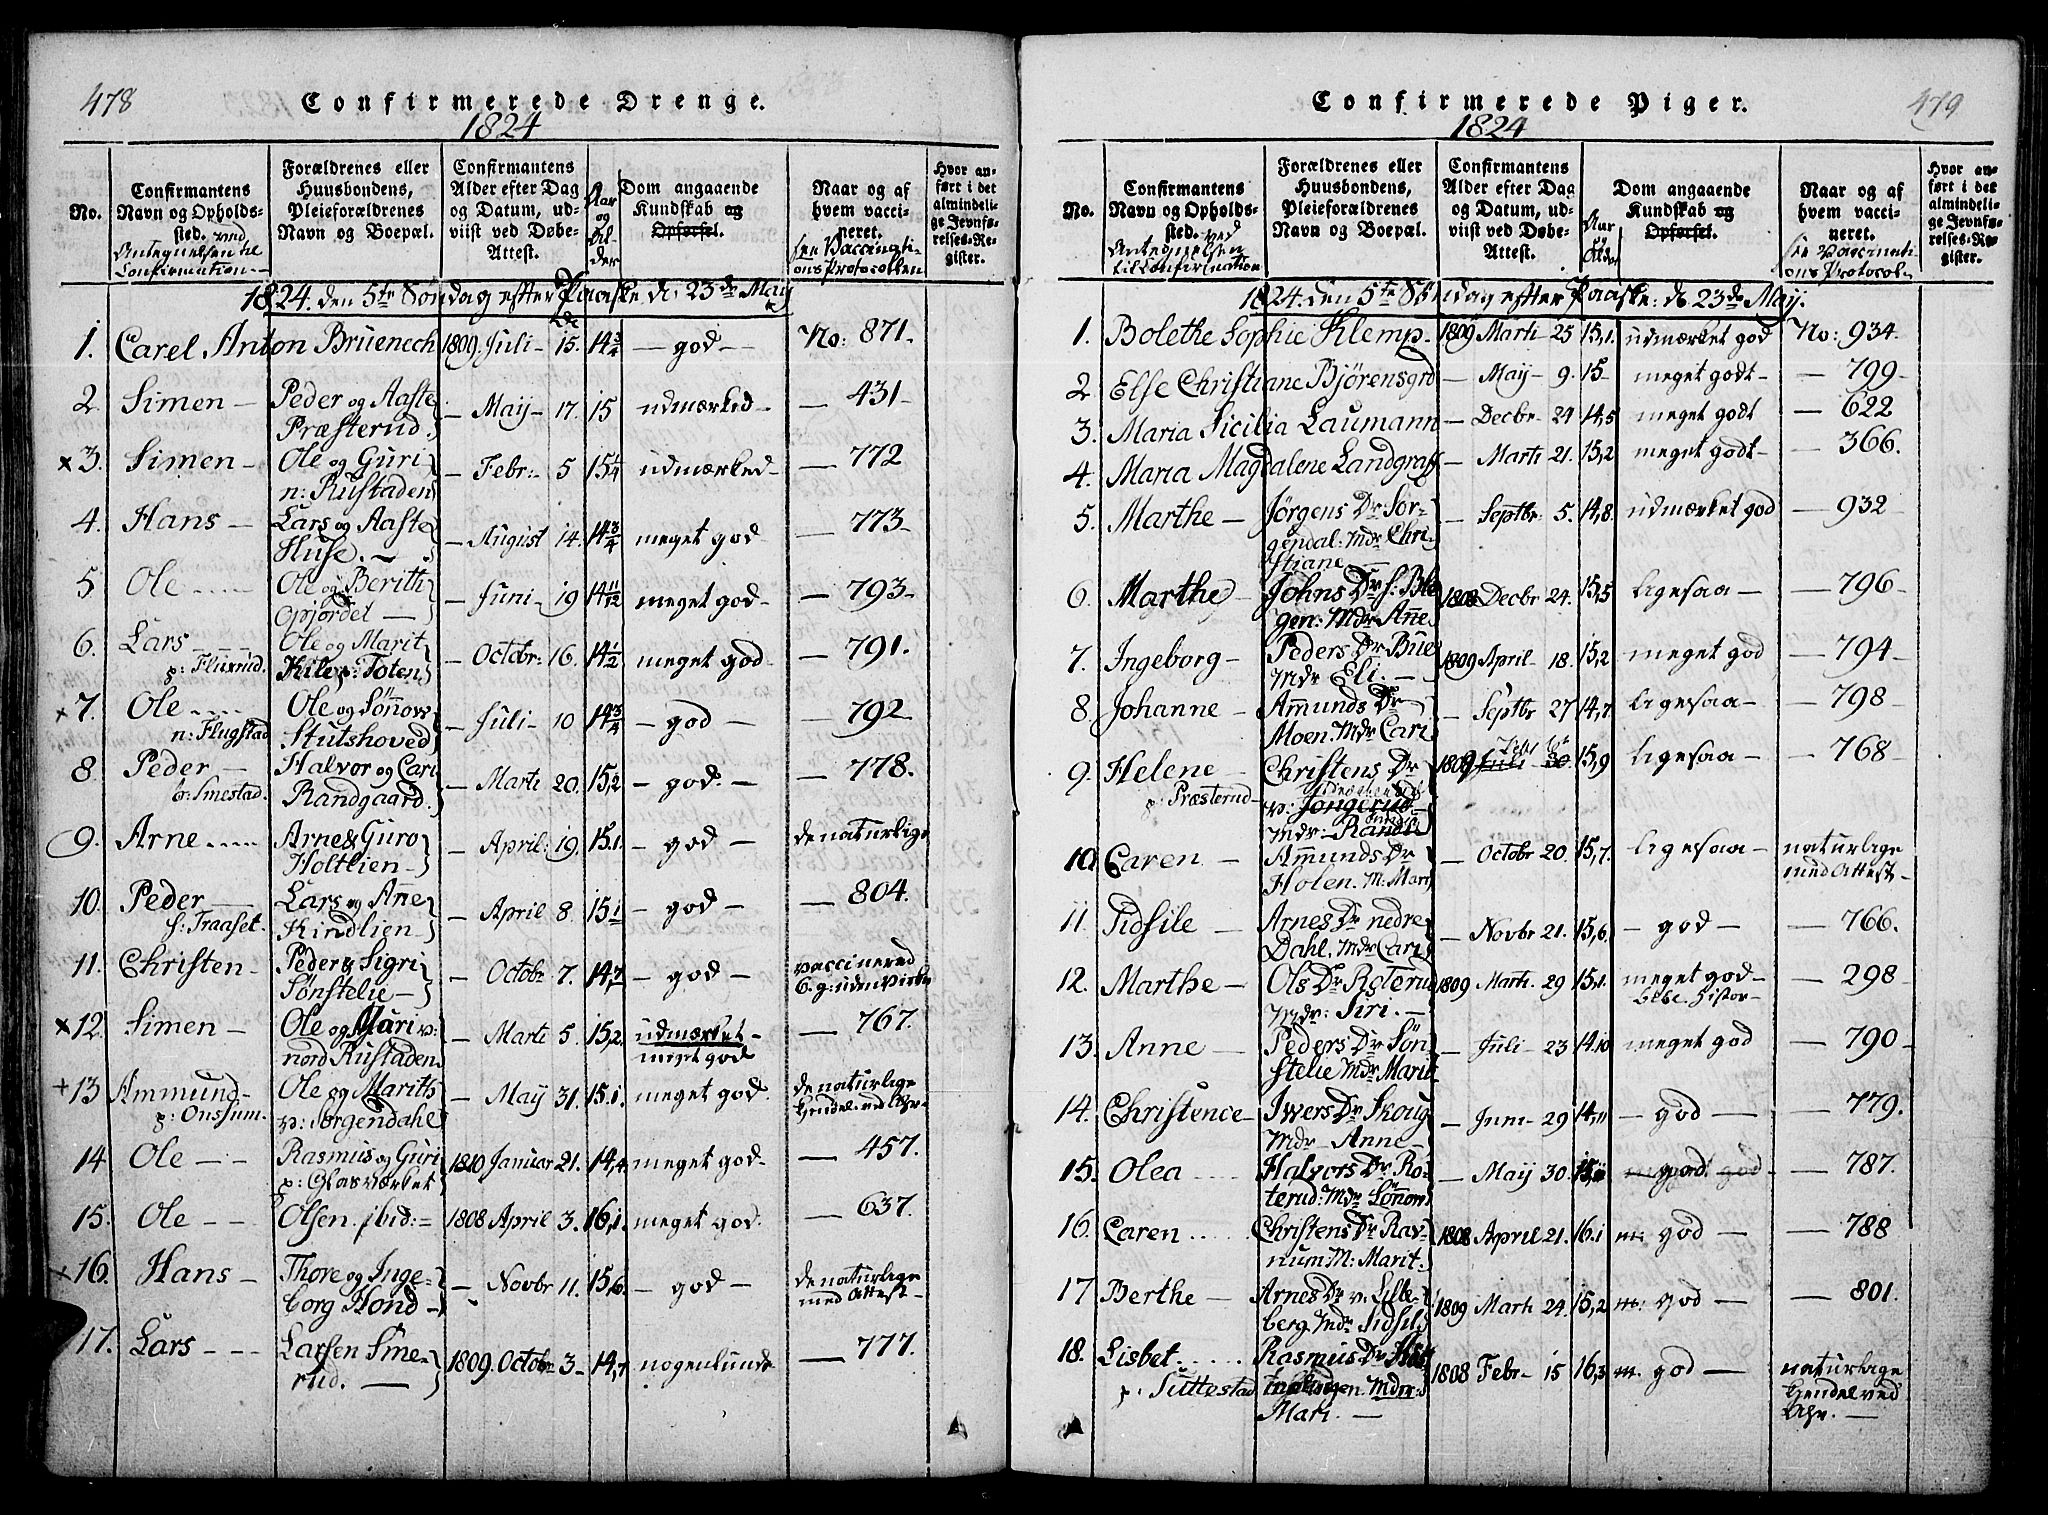 478
Confirmerede Drenge.
1824
No.
Confirmantens Navn og Opholdssted. ved Antegnelsen til Confirmation
Forældrenes eller Huusbondens, Pleieforældrenes Navn og Boepæl.
Confirmantens Alder efter Dag og Datum, udviist ved Døbe-Attest.
Aar og Alder
Dom angaaende Kundskab og Opførsel.
Naar og af hvem vaccineret. see Vaccinations Protocollen
Hvor anført i det almindelige Jevnførelses-Register.
1824. den 5te Søndag efter Paaske d: 23de May
1. Carel Anton Brüenech 1809. Juli 15. 14 3/4 — god — No: 871.
2. Simen — Peder og Aaste Præsterud. — May — 17. 15 udmærked — — 431 —
x 3. Simen — Ole og Guri n: Rustaden — Febr: 5 15 1/4 udmærked — — 772
4. Hans — Lars og Aaste Huse. — — August 14. 14 3/4 meget god — 773 —
5 Ole Ole og Berith Opjordet — — Juni — 19 14 11/12 meget god — — 793 —
6. Lars p: Fluxrud. Ole og Marit Kile p: Toten — Octobr: 16. 14 1/2 meget god — — 791.
x 7. Ole n: Flugstad Ole og Sønnow Stutshoved — Juli — 10 14 3/4 — god — — 792 —
8. Peder — Smestad. Halvor og Cari Randgaard. — Marti 20. 15,2 — god. — — 778.
9. Arne Arne & Guro Holtlien — — April 19. 15.1. — god — de naturlige
10. Peder — Traaset. Lars og Anne Kindlien — — April 8. 15 1 — god — — 804.
11. Christen — Peder & Sigri Sønstelie — — Octobr 7. 14,7 — god — vaccinered
x 12. Simen — Ole og Mari v: nord Rustaden — Marti 5. 15,2. udmærket — meget god — 767.
+ 13 Ammund — p: Onssum. Ole og Marith v: Sørgendahl — May 31. 15.1. meget god. de naturlige
14 Ole — — Rasmus og Guri p: Glasværket 1810 Januar 21. 14,4. meget god — — 457.
15. Ole — — Olsen. ibid: = 1808 April 3. 16,1. meget god. — 637.
x 16. Hans — Thore og Ingeborg Hond — — Novbr 11. 15,6. — god — de naturlige med Attest —
17. Lars — — Larsen Smerud. — 1809. Octobr 3 — 14,7 nogenlunde — 777.
479
Confirmerede Piger.
1824
No.
Confirmantens Navn og Opholdssted. ved Antegnelsen til Confirmation
Forældrenes eller Huusbondens, Pleieforældrenes Navn og Boepæl.
Confirmantens Alder efter Dag og Datum, udviist ved Døbe-Attest.
Aar Alder
Dom angaaende Kundskab og Opførsel.
Naar og af hvem vaccineret. see Vaccinations Protocol
Hvor anført i det almindelige Jevnførelses-Register.
1824. den 5te Søndag efter Paaske: d: 23de May.
1. Bolethe Sophie Klemp. 1809 Marti 25 15,1. udmærket god No: 934.
2 Else Christiane Bjørensgrd — May — 9. 15 — meget godt — — 799 —
3. Maria Sicilia Laumann — Decbr 24 14,5 meget godt — 622
4. Maria Magdalene Landgraff — Marti 21. 15,2 meget godt — — 366.
5. Marthe — Jørgens Dr Sørgendal: Mdr Christiane — — Septbr 5. 14,8. udmærket god — 932
6. Marthe — Johns Dr Blegen: Mdr Anne 1808 Decbr 24. 15,5 ligesaa — — 796 —
7. Ingeborg — Peders Dr Bue Mdr Eli. — 1809 April 18. 15,2 meget god — 794 —
8. Johanne — Ammunds Dr Moen. Mdr Cari — Septbr 27 14,7 ligesaa — — 798 —
9. Helene — p: Præsterud — Christens Dr v: Jongerud Mdr: Randi 1809 Juli 30. 15,9 ligesaa — — 768 —
10. Caren — Ammunds Dr Holen. M: Mari — Octobr 20. 15,7. ligesaa — naturlige med Attest —
11. Sidsile — Arnes Dr nedre Dahl. Mdr Cari — Novbr 21. 15,6. — god — — 766.
12. Marthe — Ols Dr Roterud Mdr: Siri. — 1809 Marti 29 15.1. meget god — — 298
13. Anne — Peders Dr Sønstelie Mdr Marit — Juli — 23 14,10 meget god — 790 —
14. Christence — Iwers Dr Skoug Mdr Anne — — Juni — 29 14,11 — god — — 779.
15. Olea Halvors Dr Roterud: Mdr Sønnow — May 30. god — 787.
16. Caren Christens Dr Ravnum M: Marit. 1808 April 21. 16.1 m: god — — 788
17 Berthe — Arnes Dr v: Lilleberg. Mdr Sidsil 1809 Marti 24. 15,2 m: god — — 801.
18. Lisbet p: Sullestad Rasmus Dr Mdr: Mari. — 1808 Febr — 15 16,3 m. god — naturlige